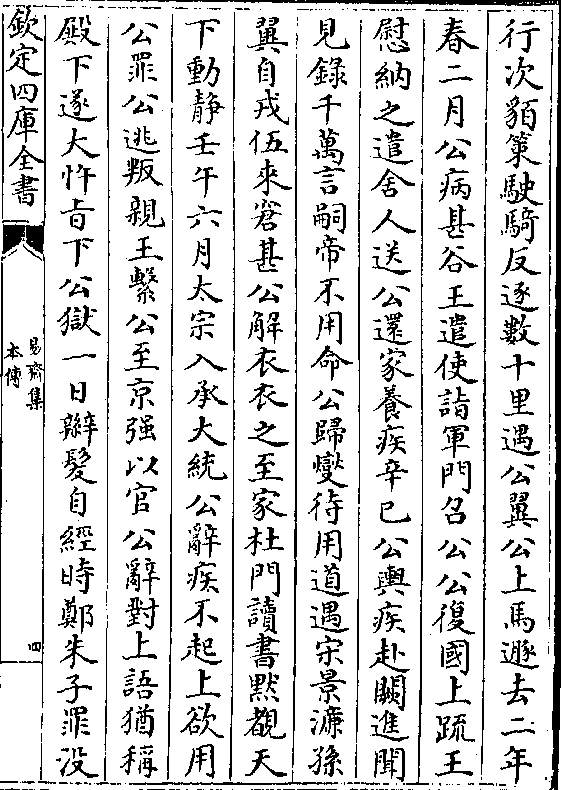 行次貊策駛騎反逐數十里遇公翼公上馬遯去二年
春二月公病甚谷王遣使詣軍門召公公復國上䟽王
慰納之遣舍人送公還家養疾辛巳公輿疾赴闕進聞
見錄千萬言嗣帝不用命公歸爕待用道遇宋景濂孫
㢲自戎伍來窘甚公解衣衣之至家杜門讀書默覩天
下動靜壬午六月太宗入承大統公辭疾不起上欲用
公罪公逃叛親王繫公至京强以官公辭對上語猶稱
殿下遂大忤㫖下公獄一日辮髮自經時鄭朱子罪没
欽定四庫全書
易齋集
本傳
四